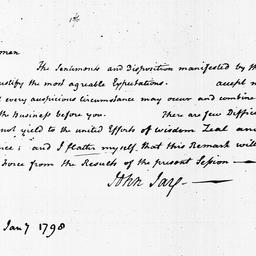 men
The Sentiments and Disposition manifested by th
justify the most agreable Expectations. accept m
d every auspicious Circumstance may occur and combine
the Business before you. There are few Diffic
not yield to the united Efforts of wisdom Zeal and
nce; and I flatter myself that this Remark will
Force from the Results of the present Session —
John Jay. —
Jany 1798